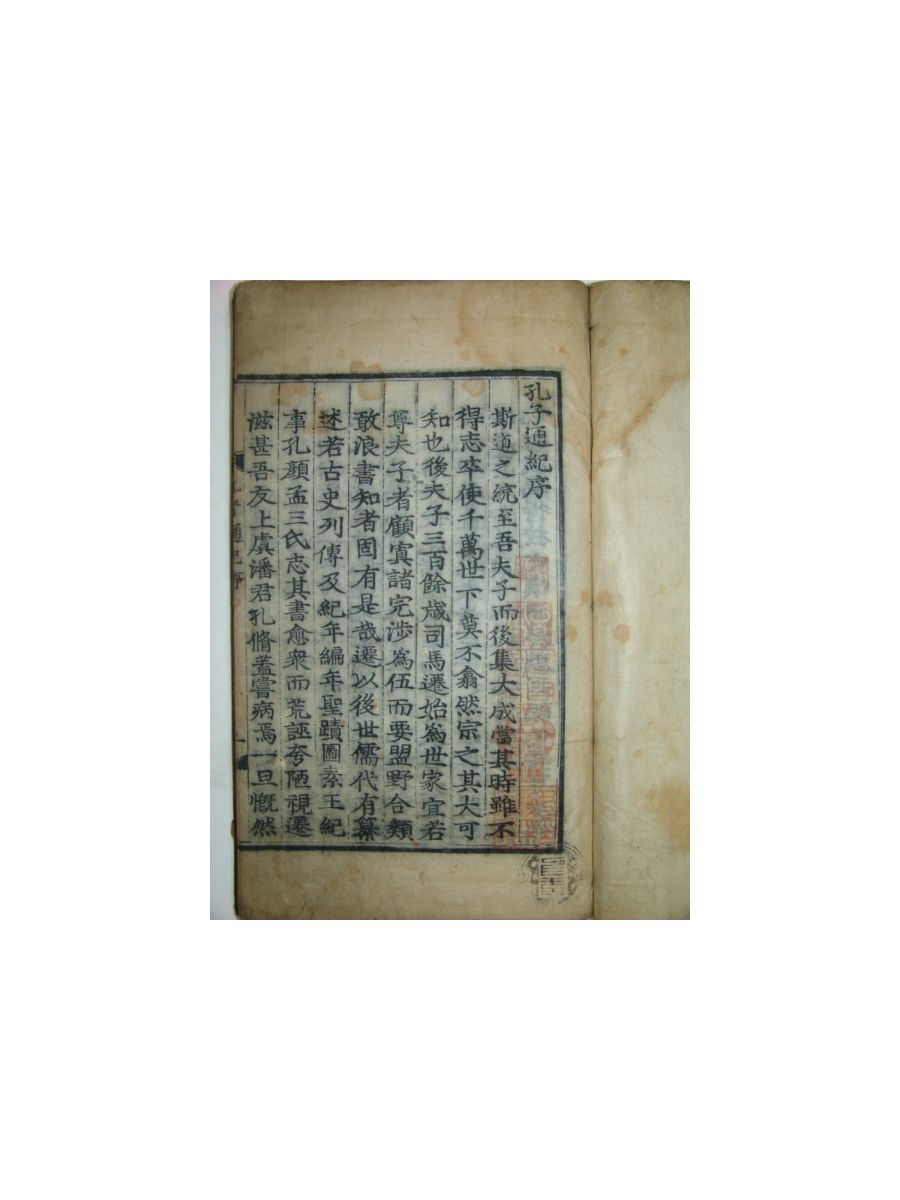 孔子通紀序
斯道之統至吾夫子而後集大成當其時雖不
得志卒使千萬世下莫不翕然宗之其大可
知也後夫子三百餘歲司馬遷始爲世家宜若
尊夫子者顧寘諸完涉爲伍而要盟野合類
敢浪書知者固有是哉遷以後世儒代有纂
述若古史列傳及紀年編年聖蹟圖素王紀
事孔顔孟三氏志其書愈衆而荒誣夸陋視遷
滋甚吾友上虞潘君孔脩蓋嘗病焉一旦慨然